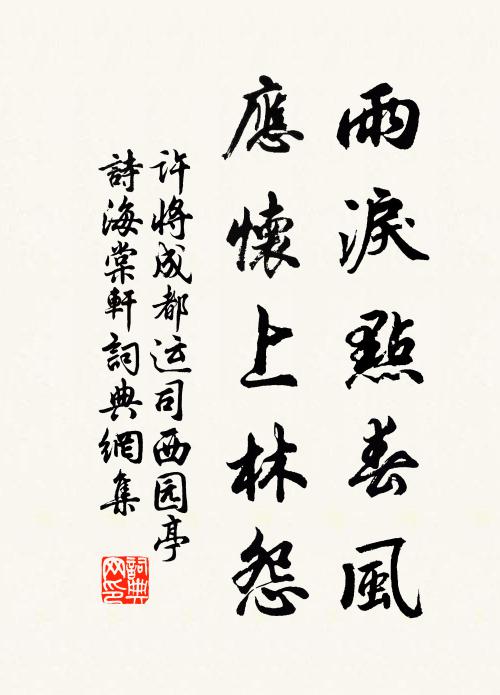 雨淚點春風
應懷上林怨
许將成都运司西园亭
詩海棠軒詞典網集
詞典网印